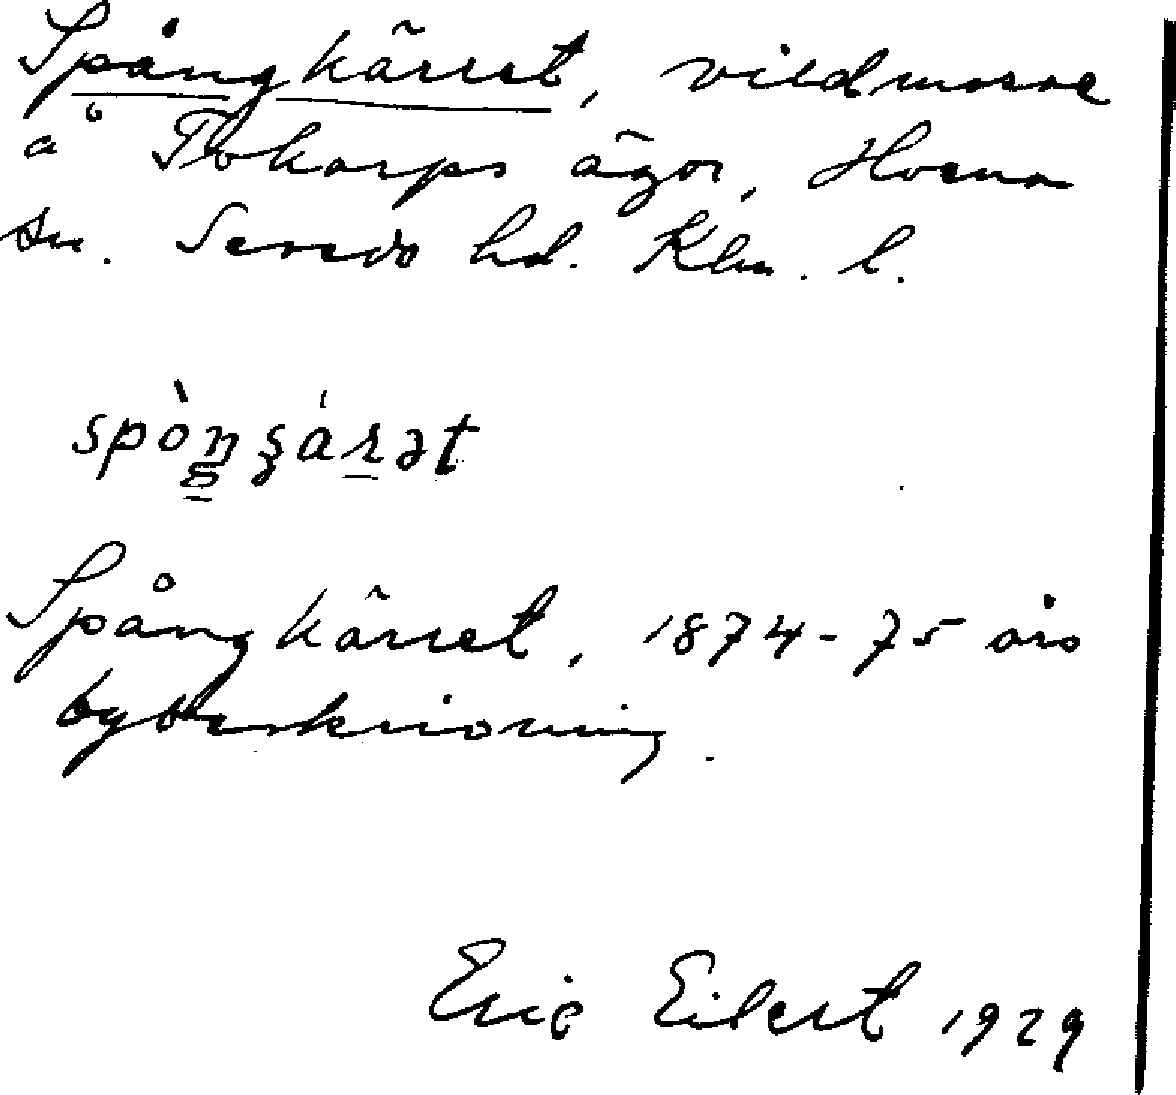 Spångkärret, vildmosse
å Tokarps ägor, Horna
sn. Sevede hd. Klm. l.
spòngárət
Spångkärret, 1874-75 års
bybeskrivning.
Eric Eilert 1929